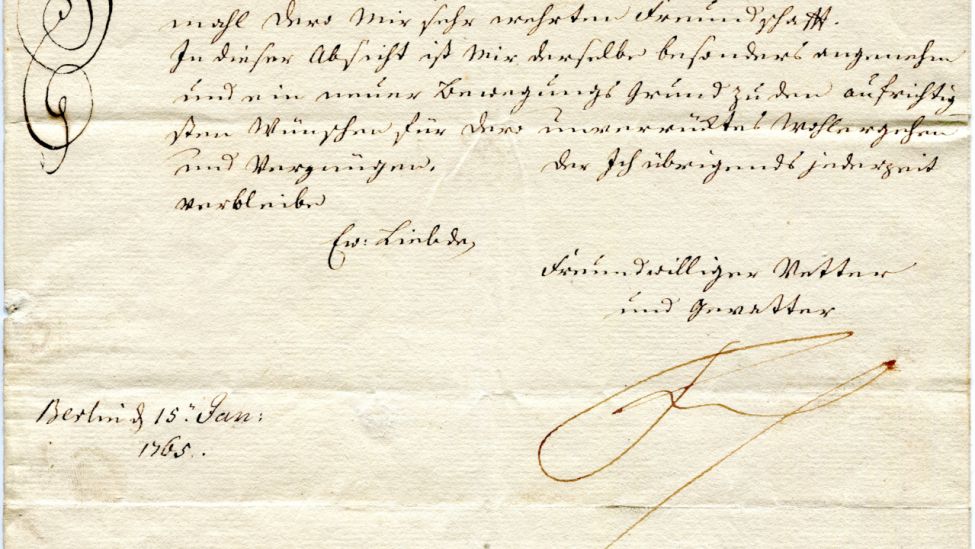 mahl Dero Mir sehr wehrten Freundschafft.
In dieser Absicht ist Mir derselbe besonders angenehm
und ein neuer Bewegungs Grund zu den aufrichtig
sten Wünschen für Dero unverrücktes Wohlergehen
und Vergnügen. Der Ich übrigends jederzeit
verbleibe
Ew: Liebden
Freundwilliger Vetter
und Gevatter
Berlin d 15ᵗ Jan:
1765.